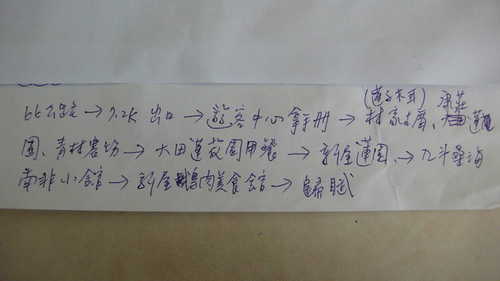 (蓮子木耳) 康莊
66公路→7.2K 出口→遊客中心拿手冊→林家古厝、蓮
園、青林農場→大田蓮花園用餐→新屋蓮園、→九斗
南非小館→新屋鵝肉美食館→歸賦